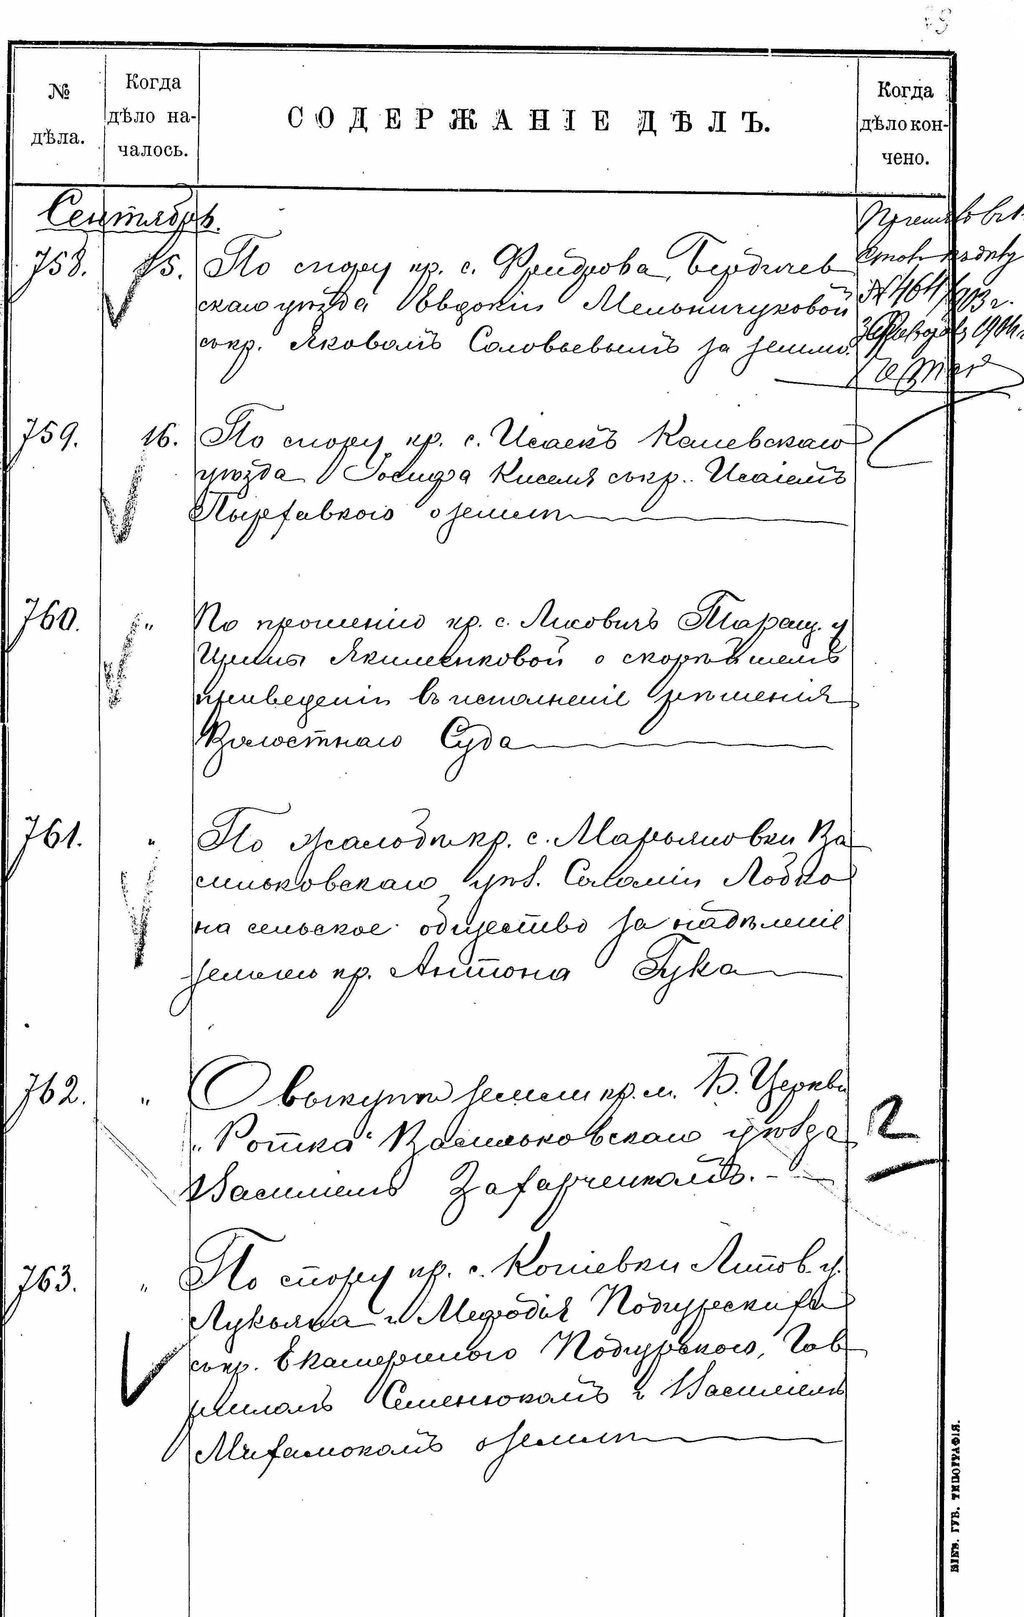 № дѣла.
Когда дѣло на-
чалось.
СОДЕРЖАНІЕ ДѢЛЪ.
Когда дѣло кон-
чено.
Сентябрь.
758. 15. По спору кр. с. Бердичев
скаго уѣзда Евдокіи Мельничуковой
съ кр. Яковомъ Соловьевымъ за землю.
759. 16. По спору кр. с. Исаекъ Каневскаго
уѣзда Іосифа Киселя съ кр. Исаіемъ
о земли
760. „ По прошенію кр. с. Лисовичъ Таращ. у
Якименковой о скорѣйшемъ
приведеніи въ исполненіе рѣшенія
Волостнаго Суда
761. „ По жалобѣ кр. с. Марьяновки Ва
сильковскаго уѣз. Соломіи Лобко
на сельское общество за надѣленіе
землею кр. Антона Гука
762. „ О выкупѣ земли кр. м. Б. Церкви
„Ротка“ Васильковскаго уѣзда
Василіемъ Захарченкомъ.
2
763. „ По спору кр. с. Кошевки Липов. у.
Лукьяна и Мефодія Подгурскихъ
съ кр. Подгурского, Гав
риломъ Семенюкомъ и Василіемъ
о земли
КІЕВ. ГУБ. ТИПОГРАФІЯ.